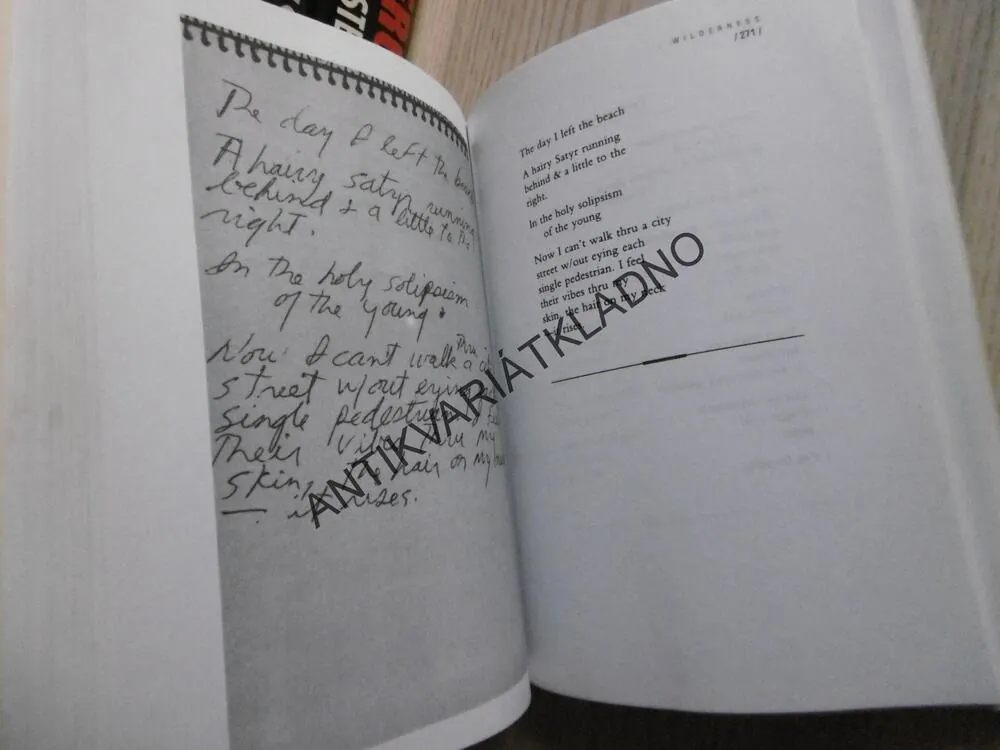 The day I left the
A hairy satyr running
behind & a little to the
right.
In the holy solipsism
of the young.
Now I can't walk thru a
street w/out eying
single pedestrian
Their vibes thru my
skin, the hair on my
— it rises.
WILDERNESS
/271/
The day I left the beach
A hairy Satyr running
behind & a little to the
right.
In the holy solipsism
of the young
Now I can't walk thru a city
street w/out eying each
single pedestrian. I feel
their vibes thru my
skin, the hair on my neck
it rises.
ANTIKVARIÁTKLADNO